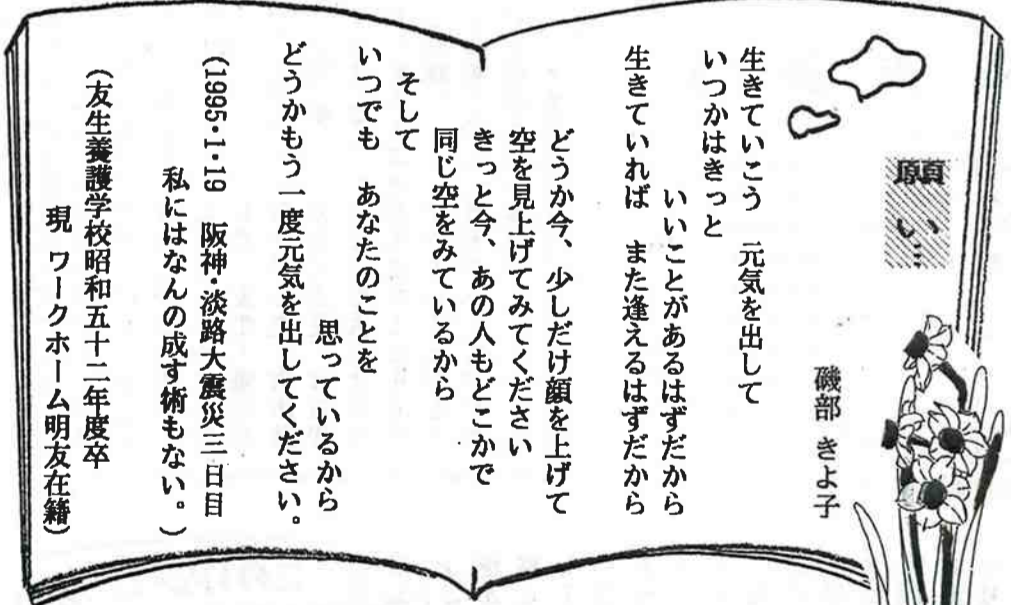 願い…
磯部 きよ子
生きていこう 元気を出して
いつかはきっと
いいことがあるはずだから
生きていれば また逢えるはずだから
どうか今、少しだけ顔を上げて
空を見上げてみてください
きっと今、あの人もどこかで
同じ空をみているから
そして
いつでも あなたのことを
思っているから
どうかもう一度元気を出してください。
(1995・1・19 阪神・淡路大震災三日目
私にはなんの成す術もない。)
(友生養護学校昭和五十二年度卒
現 ワークホーム明友在籍)